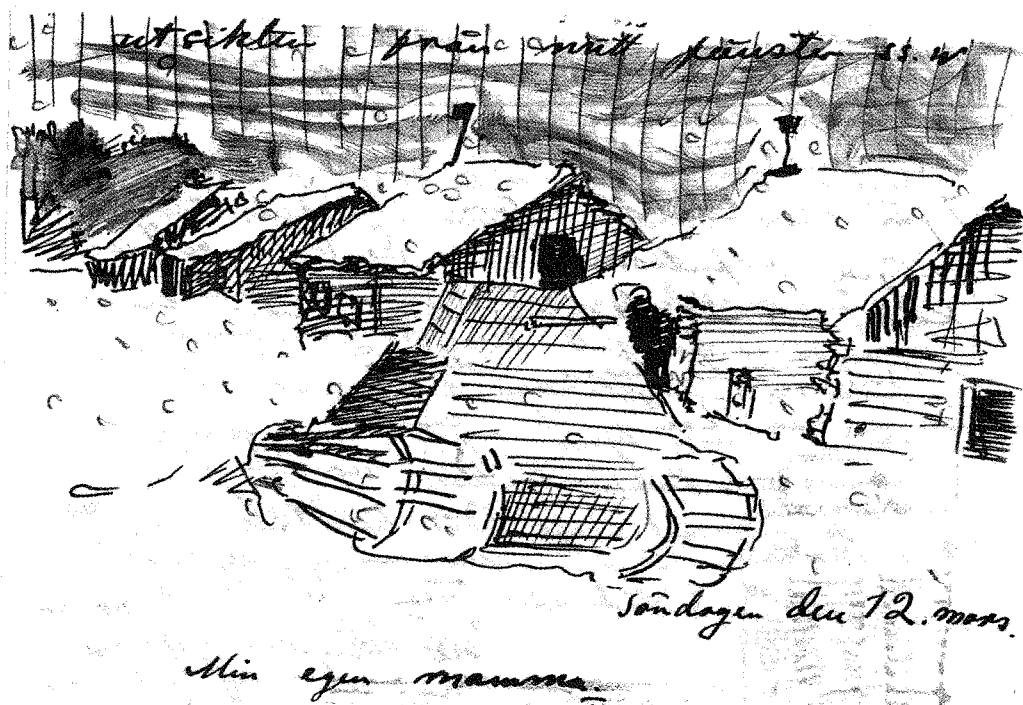 utsikten från mitt fönster
Söndagen den 12. mars.
Min egen mamma.